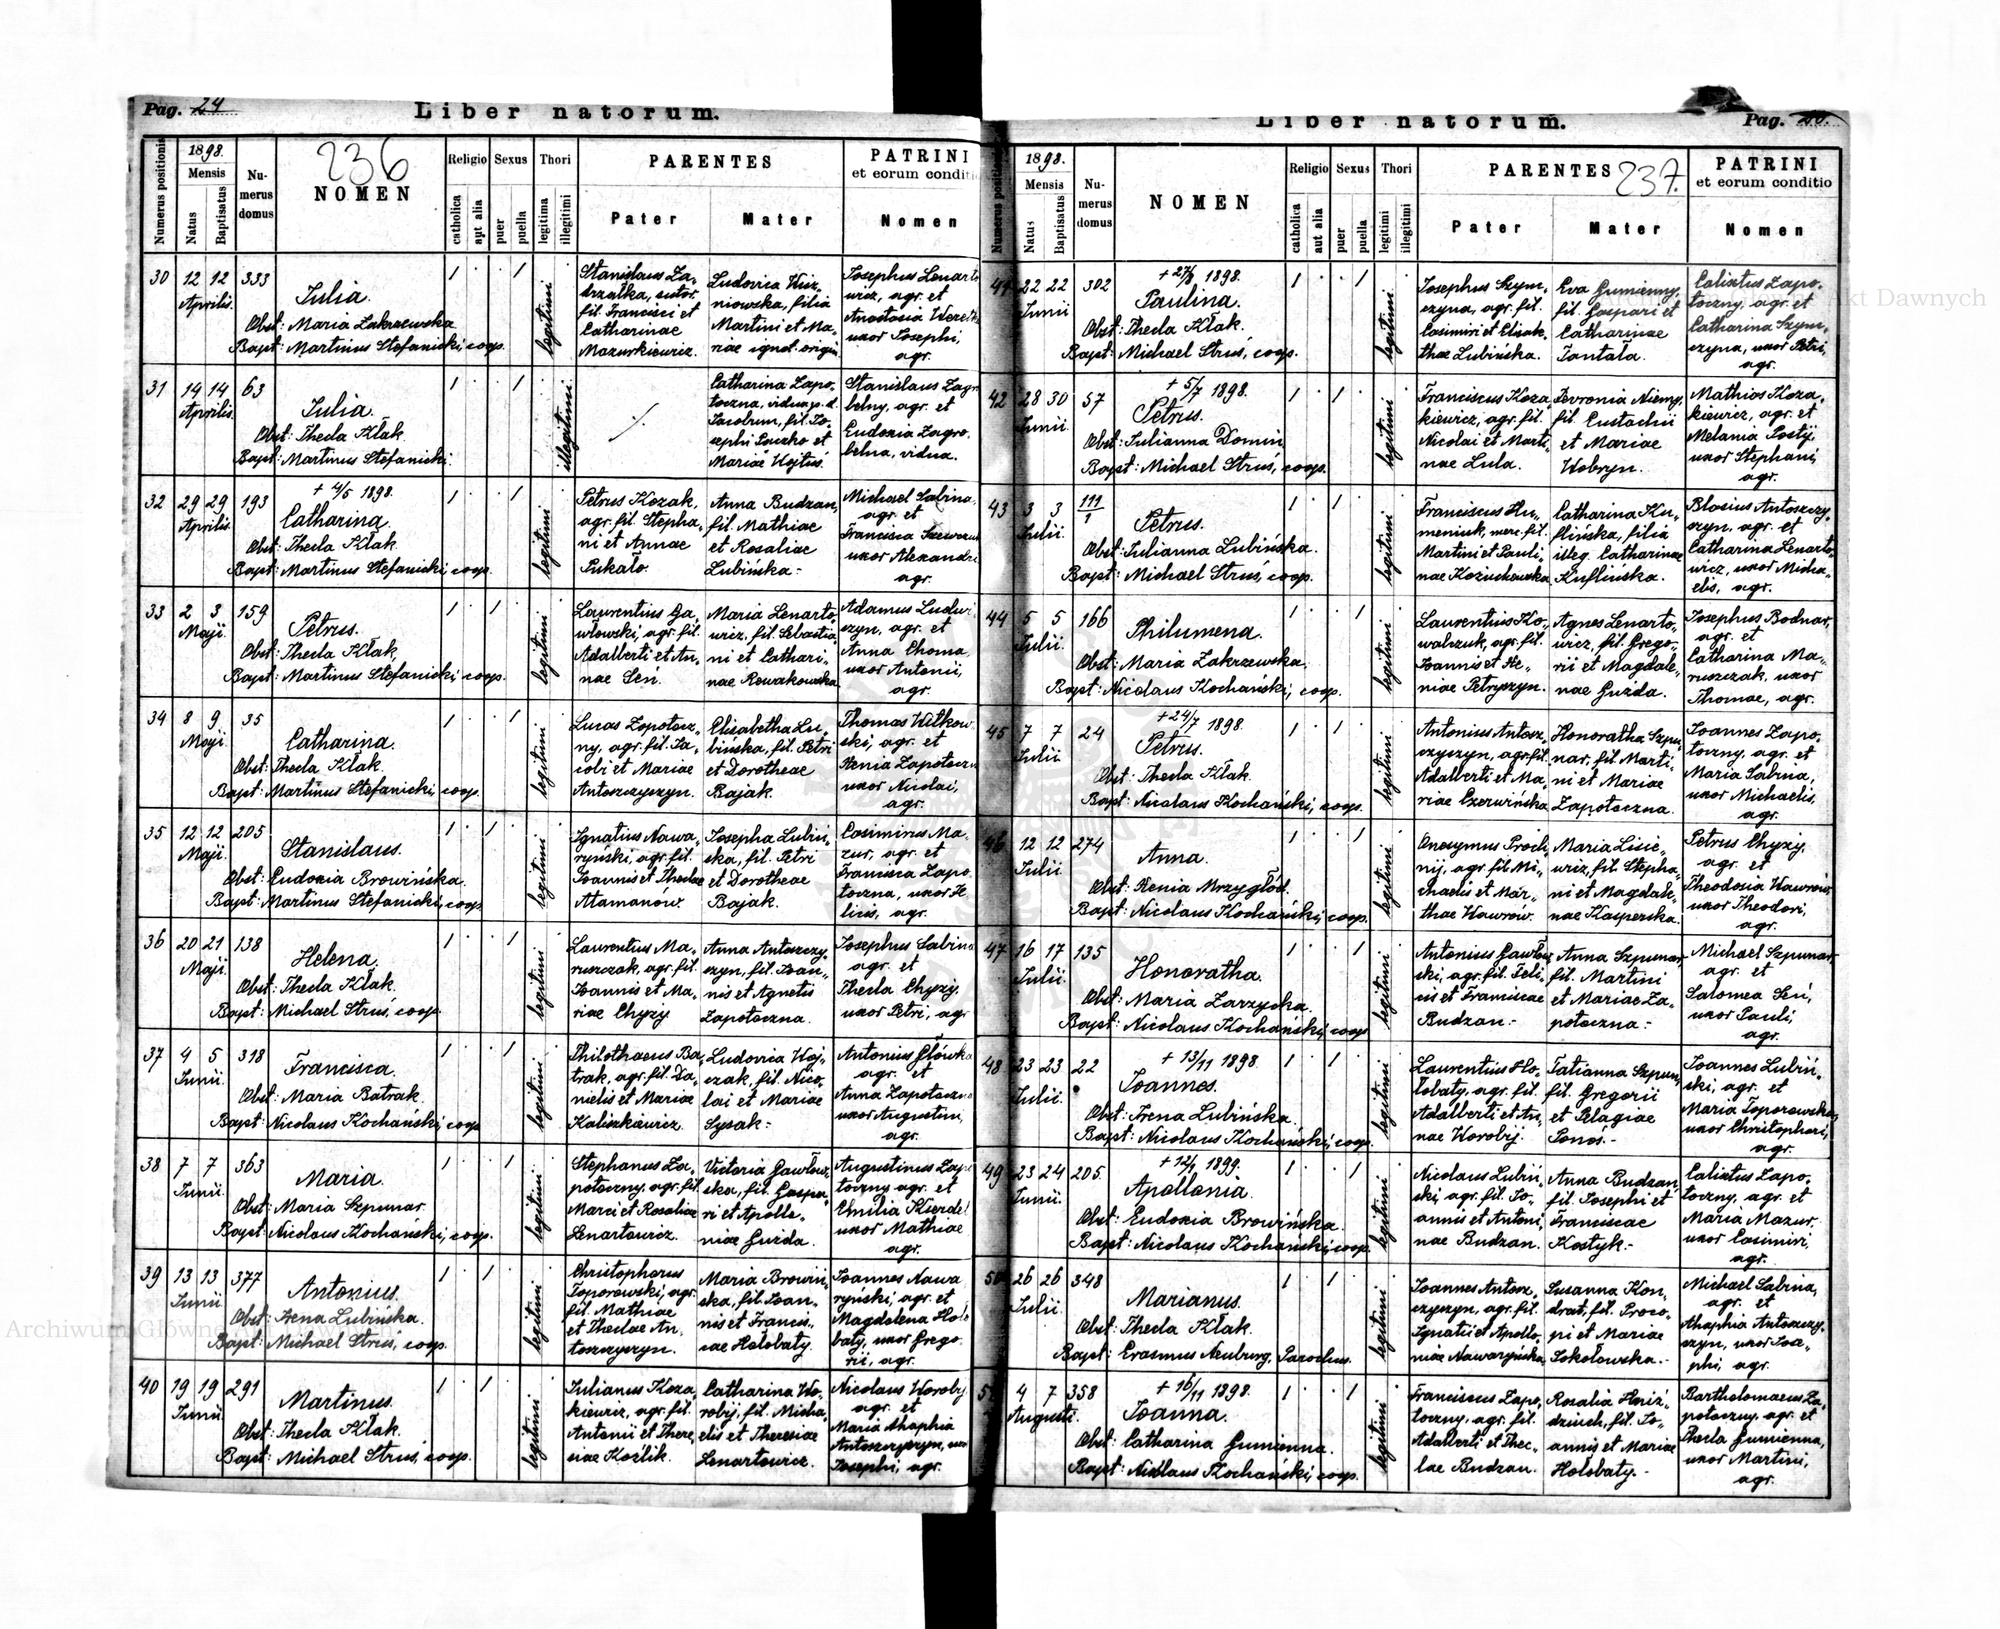 Pag. 24
Liber natorum.
Numerus positionis
1898.
Mensis
Natus
Baptisatus
Nu-
merus
domus
236
NOMEN
Religio
catholica
aut alia
Sexus
puer
puella
Thori
legitima
illegitimi
PARENTES
Pater
Mater
PATRINI
et eorum conditio
Nomen
30 12 12 333
Aprilis
Julia.
Obst: Maria Zakrzewska
Bapt: Martinus Stefanicki, coop.
legitimi
Stanislaus Za-
drzałka, sutor,
fil. Francisci et
Catharinae
Mazurkiewicz.
Ludovica Wisz-
niowska, filia
Martini et Ma-
riae ignot. origin.
Josephus Lenarto
wicz, agr. et
Anastasia
uxor Josephi,
agr.
31 14 14 63
Aprilis
Julia.
Obst: Thecla Kłak.
Bapt: Martinus Stefanicki.
illegitimi
Catharina Zapo-
toczna, vidua p. d.
Jacobum, fil. Jo-
sephi Paczko et
Mariae Wojtuś.
Stanislaus Zagro
belny, agr. et
Eudoxia Zagro-
belna, vidua.
32 29 29 193
Aprilis
+ 4/5 1898.
Catharina.
Obst: Thecla Kłak
Bapt: Martinus Stefanicki, coop.
legitimi
Petrus Kozak,
agr. fil. Stepha-
ni et Annae
Pukało.
Anna Budzan,
fil. Mathiae
et Rosaliae
Lubińska.-
Michael Sabina,
agr. et
Francisca
uxor Alexandri
agr.
33 2 3 159
Maji
Petrus.
Obst: Thecla Kłak,
Bapt: Martinus Stefanicki, coop.
legitimi
Laurentius Ga-
włowski, agr. fil.
Adalberti et An-
nae Seń.
Maria Lenarto-
wicz, fil. Sebastia-
ni et Cathari-
nae Rewakowska.
Adamus Ludwi
czyn, agr. et
Anna Choma,
uxor Antonii,
agr.
34 8 9 35
Maji
Catharina.
Obst: Thecla Kłak.
Bapt: Martinus Stefanicki, coop.
legitimi
Lucas Zapotocz-
ny, agr. fil. Ja-
cobi et Mariae
Antoszczyszyn.
Elisabetha Lu-
bińska, fil. Petri
et Dorotheae
Bajak.
Thomas Witkow-
ski, agr. et
Xenia Zapotoczn
uxor Nicolai,
agr.
35 12 12 205
Maji
Stanislaus.
Obst: Eudoxia Browińska.
Bapt: Martinus Stefanicki, coop
legitimi
Ignatius Nawa-
ryński, agr. fil.
Joannis et Theclae
Atamanów.
Josepha Lubiń-
ska, fil. Petri
et Dorotheae
Bajak.
Casimirus Ma-
zur, agr. et
Francisca Zapo-
toczna, uxor Fe-
licis, agr.
36 20 21 138
Maji
Helena.
Obst: Thecla Kłak.
Bapt: Michael Struś, coop.
legitimi
Laurentius Ma-
ruszczak, agr. fil.
Joannis et Ma-
riae Chyzy
Anna Antoszczy-
szyn, fil. Joan-
nis et Agnetis
Zapotoczna.
Josephus Sabina
agr. et
Thecla Chyzy,
uxor Petri, agr
37 4 5 318
Junii
Francisca.
Obst: Maria Batrak.
Bapt: Nicolaus Kochański, coop
legitimi
Philothaeus Ba-
trak, agr. fil. Da-
nielis et Mariae
Kaliszkiewicz.
Ludovica Woj-
czak, fil. Nico-
lai et Mariae
Sysak.-
Antonius Główka
agr. et
Anna Zapotoczna
uxor Augustini,
agr.
38 7 7 363
Junii
Maria.
Obst: Maria Szpunar.
Bapt: Nicolaus Kochański, coop.
legitimi
Stephanus Za-
potoczny, agr. fil.
Marci et Rosaliae
Lenartowicz.
Victoria Gawłow-
ska, fil. Gaspa-
ri et Apollo-
niae Guzda.
Augustinus Zapo
toczny agr. et
Emilia
uxor Mathiae
agr.
39 13 13 377
Junii
Antonius.
Obst: Irena Lubińska.
Bapt: Michael Struś, coop.
legitimi
Christophorus
Toporowski, agr.
fil. Mathiae
et Theclae An-
toszczyszyn.
Maria Browiń-
ska, fil. Joan-
nis et Francis-
cae Hołobaty.
Joannes Nawa
ryński, agr. et
Magdalena Hoło
baty, uxor Grego-
rii, agr.
40 19 19 291
Junii
Martinus.
Obst: Thecla Kłak.
Bapt: Michael Struś, coop.
legitimi
Julianus Koza-
kiewicz, agr. fil.
Antonii et There-
siae Koźlik.
Catharina Wo-
robij, fil. Micha-
elis et Theresiae
Lenartowicz.
Nicolaus Worobij
agr. et
Maria Ahaphia
Antoszczyszyn, uxor
Josephi, agr.
Liber natorum.
Pag. 25.
Numerus positionis
1898.
Mensis
Natus
Baptisatus
Nu-
merus
domus
NOMEN
Religio
catholica
aut alia
Sexus
puer
puella
Thori
legitimi
illegitimi
PARENTES 237.
Pater
Mater
PATRINI
et eorum conditio
Nomen
41 22 22 302
Junii
+ 27/8 1898.
Paulina.
Obst: Thecla Kłak.
Bapt: Michael Struś, coop.
legitimi
Josephus Szym-
czyna, agr. fil.
Casimiri et Elisab-
thae Lubińska.
Eva Gumienny,
fil. Gaspari et
Catharinae
Tantała.
Calixtus Zapo-
toczny, agr. et
Catharina Szym-
czyna, uxor Petri,
agr.
42 28 30 57
Junii
+ 5/7 1898.
Petrus.
Obst: Julianna Domin
Bapt: Michael Struś, coop.
legitimi
Franciscus Koza-
kiewicz, agr. fil.
Nicolai et Marti-
nae Lula.
Fevronia Niemy,
fil. Eustachii
et Mariae
Hobryn.
Mathias Koza-
kiewicz, agr. et
Melania Posty,
uxor Stephani,
agr.
43 3 3 111/1
Julii
Petrus.
Obst: Julianna Lubińska.
Bapt: Michael Struś, coop.
legitimi
Franciscus Hu-
meniuk, merc. fil.
Martini et Pauli-
nae Koziuchowska
Catharina Ku-
flińska, filia
illeg. Catharinae
Kuflińska.
Blasius Antoszczy-
szyn, agr. et
Catharina Lenarto-
wicz, uxor Micha-
elis, agr.
44 5 5 166
Julii
Philumena.
Obst: Maria Zakrzewska.
Bapt: Nicolaus Kochański, coop.
legitimi
Laurentius Ko-
walczuk, agr. fil.
Joannis et Xe-
niae Petryszyn.
Agnes Lenarto-
wicz, fil. Grego-
rii et Magdale-
nae Guzda.
Josephus Bodnar,
agr. et
Catharina Ma-
ruszczak, uxor
Thomae, agr.
45 7 7 24
Julii
+ 24/7 1898.
Petrus.
Obst: Thecla Kłak.
Bapt: Nicolaus Kochański, coop.
legitimi
Antonius Antosz-
czyszyn, agr. fil.
Adalberti et Ma-
riae Czerwińska
Honoratha Szpu-
nar, fil. Marti-
ni et Mariae
Zapotoczna.
Joannes Zapo-
toczny, agr. et
Maria Sabina,
uxor Michaelis,
agr.
46 12 12 274
Julii
Anna.
Obst: Xenia Mrzygłód.
Bapt: Nicolaus Kochański, coop.
legitimi
Onesymus Proch-
nij, agr. fil. Mi-
chaelis et Mar-
thae Wawrów.
Maria Lisie-
wicz, fil. Stepha-
ni et Magdale-
nae Kasperska.
Petrus Chyzy,
agr. et
Theodosia Wawrów
uxor Theodori,
agr.
47 16 17 135
Julii
Honoratha.
Obst: Maria Zarzycka.
Bapt: Nicolaus Kochański, coop
legitimi
Antonius Gawłow-
ski, agr. fil. Feli-
cis et Franciscae
Budzan.-
Anna Szpunar,
fil. Martini
et Mariae Za-
potoczna.-
Michael Szpunar,
agr. et
Salomea Seń,
uxor Pauli,
agr.
48 23 23 22
Julii
+ 13/11 1898.
Joannes.
Obst: Irena Lubińska.
Bapt: Nicolaus Kochański, coop.
legitimi
Laurentius Ho-
łobaty, agr. fil.
Adalberti et An-
nae Worobij.
Tatianna Szpun,
fil. Gregorii
et Pelagiae
Sonos.-
Joannes Lubiń-
ski, agr. et
Maria Toporowska,
uxor Christophori,
agr.
49 23 24 205
Junii
+ 12/1 1899.
Apollonia.
Obst: Eudoxia Browińska.
Bapt: Nicolaus Kochański, coop
legitimi
Nicolaus Lubiń-
ski, agr. fil. Jo-
annis et Antoni-
nae Budzan.
Anna Budzan,
fil. Josephi et
Franciscae
Kostyk.-
Calixtus Zapo-
toczny, agr. et
Maria Mazur,
uxor Casimiri,
agr.
50 26 26 348
Julii
Marianus.
Obst: Thecla Kłak.
Bapt: Erasmus Neuburg, Parochus.
legitimi
Joannes Antosz-
czyszyn, agr. fil.
Ignatii et Apollo-
niae Nawaryńska
Susanna Kon-
drat, fil. Proco-
pi et Mariae
Sokołowska.-
Michael Sabina,
agr. et
Ahaphia Antoszczy-
szyn, uxor Jose-
phi, agr.
51 4 7 358
Augusti.
+ 16/11 1898.
Joanna.
Obst: Catharina Gumienna.
Bapt: Nicolaus Kochański, coop.
legitimi
Franciscus Zapo-
toczny, agr. fil.
Adalberti et Thec-
lae Budzan.
Rosalia Hniz-
dziuch, fil. Jo-
annis et Mariae
Hołobaty.-
Bartholomaeus Za-
potoczny, agr. et
Thecla Gumienna,
uxor Martini,
agr.
Archiwum Główne Akt Dawnych
Archiwum Główne Akt Dawnych